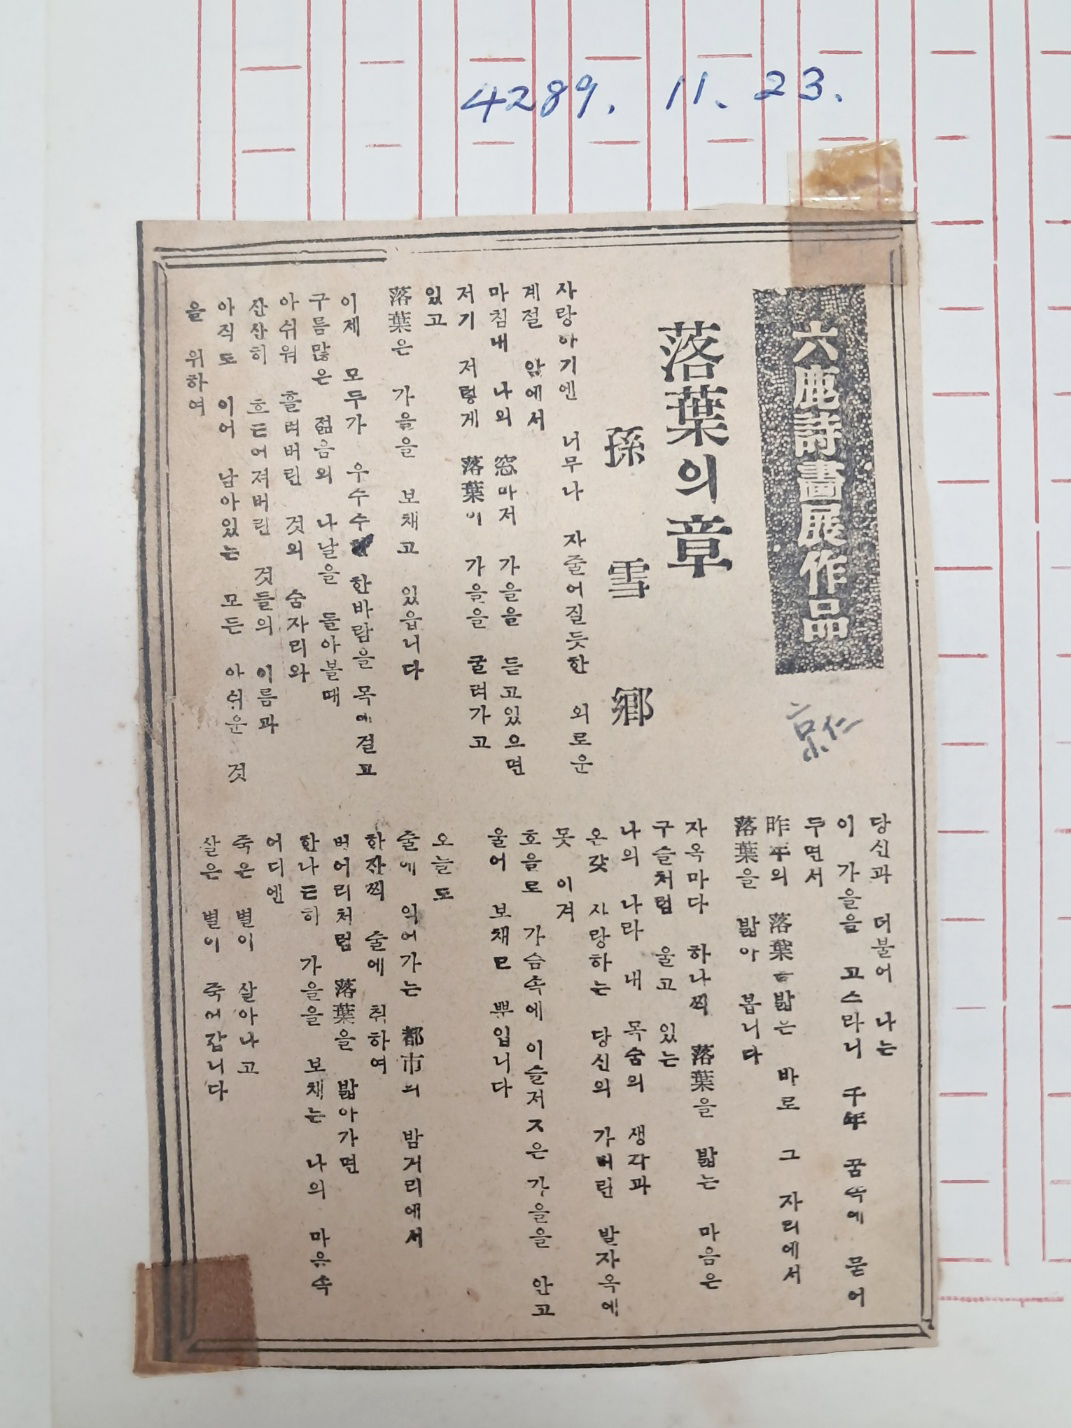 4289. 11. 23.
六鹿詩畵展作品
京仁
落葉의 章
孫 雪 鄕
사랑아기엔 너무나 자줄어질듯한 외로운
계절 앞에서
마침내 나의 窓마저 가을을 듣고있으면
저기 저렇게 落葉이 가을을 굴려가고
있고
落葉은 가을을 보채고 있읍니다
이제 모두가 우수수 한바람을 목에걸고
구름많은 젊음의 나날을 돌아볼때
아쉬워 흘려버린 것의 숨자리와
산산히 흐트어져버린 것들의 이름과
아직도 이어 남아있는 모든 아쉬운 것
을 위하여
당신과 더불어 나는
이 가을을 고스라니 千年 꿈속에 묻어
두면서
昨年의 落葉을밟는 바로 그 자리에서
落葉을 밟아 봅니다
자옥마다 하나씩 落葉을 밟는 마음은
구슬처럼 울고 있는
나의 나라 내 목숨의 생각과
온갖 사랑하는 당신의 가버린 발자옥에
못 이겨
호을로 가슴속에 이슬저즈은 가을을 안고
울어 보채ㄹ 뿐입니다
오늘도
술에 익어가는 都市의 밤거리에서
한잔씩 술에 취하여
벙어리처럼 落葉을 밟아가면
한나든히 가을을 보채는 나의 마음속
어디엔
죽은 별이 살아나고
살은 별이 죽어갑니다